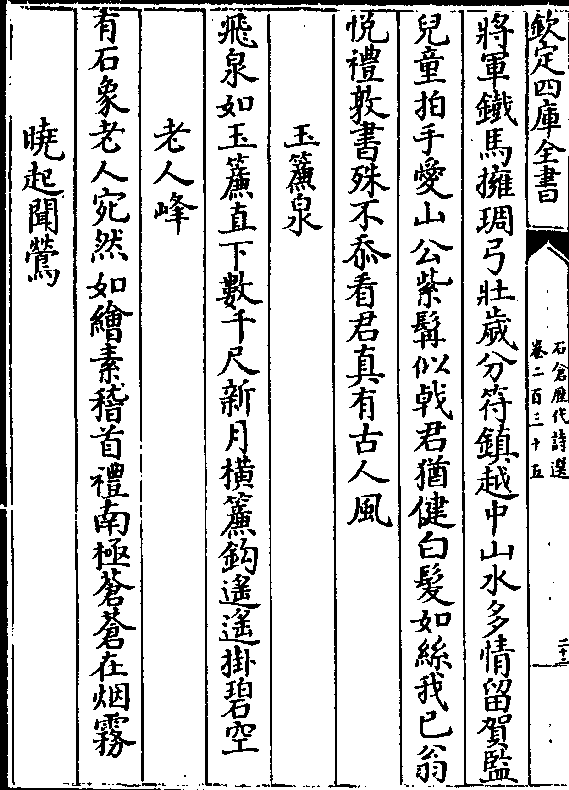 欽定四庫全書
石倉歷代詩選
卷二百三十五
二十三
將軍鐵馬擁琱弓壯歲分符鎮越中山水多情留賀監
兒童拍手愛山公紫髯似㦸君猶健白髮如絲我已翁
悦禮敦書殊不忝看君真有古人風
玉簾泉
飛泉如玉簾直下數千尺新月横簾鈎遥遥掛碧空
老人峰
有石象老人宛然如繪素稽首禮南極蒼蒼在烟霧
曉起聞鶯